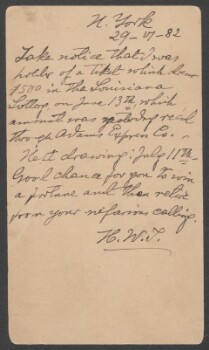 N. York
29-VI-82
Take notice that I was
holder of a tiket which drew
$500 in the Louisiana
Lottery on June 13th which
amount was yesterday recd
through Adams Express Co.
Next drawing: July 11th
Good chance for you to win
a fortune and then retire
from your nefarious calling.
H.W.T.